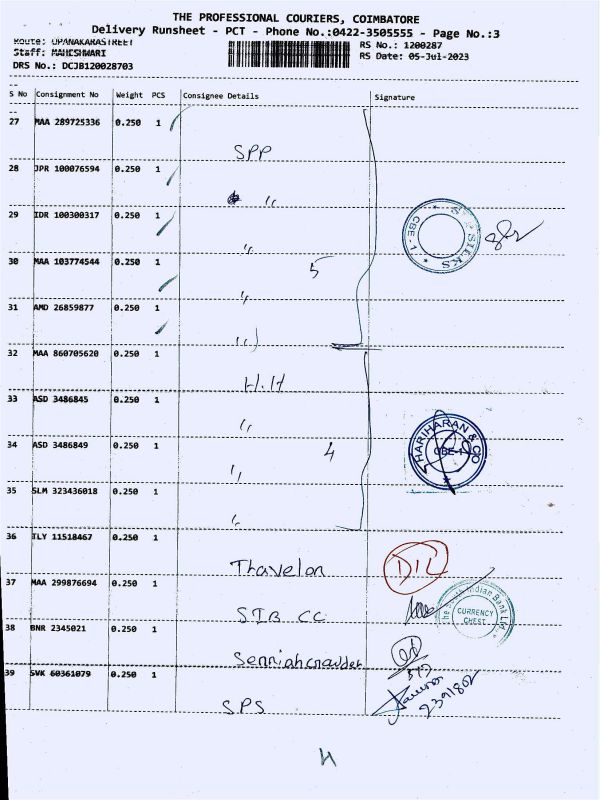 THE PROFESSIONAL COURIERS, COIMBATORE
Delivery Runsheet - PCT - Phone No.:0422-3505555 - Page No.:3
Route: UPANAKARASTREET
RS No.: 1200287
Staff: MAHESHWARI
RS Date: 05-Jul-2023
DRS No.: DCJB120028703
S No Consignment No Weight PCS Consignee Details Signature
27 MAA 289725336 0.250 1
SPP
28 JPR 100076594 0.250 1
"
29 IDR 100300317 0.250 1
"
30 MAA 103774544 0.250 1
" 5
31 AMD 26859877 0.250 1
"
S P SILKS
CBE - 1
32 MAA 860705620 0.250 1
H.H
33 ASD 3486845 0.250 1
"
34 ASD 3486849 0.250 1
" 4
35 SLM 323436018 0.250 1
"
HARIHARAN & CO
CBE-1
36 ILY 11518467 0.250 1
Thavelon DIL
37 MAA 299876694 0.250 1
SIB CC
Indian Bank Ltd
CURRENCY
CHEST
38 BNR 2345021 0.250 1
39 SVK 60361079 0.250 1
SPS